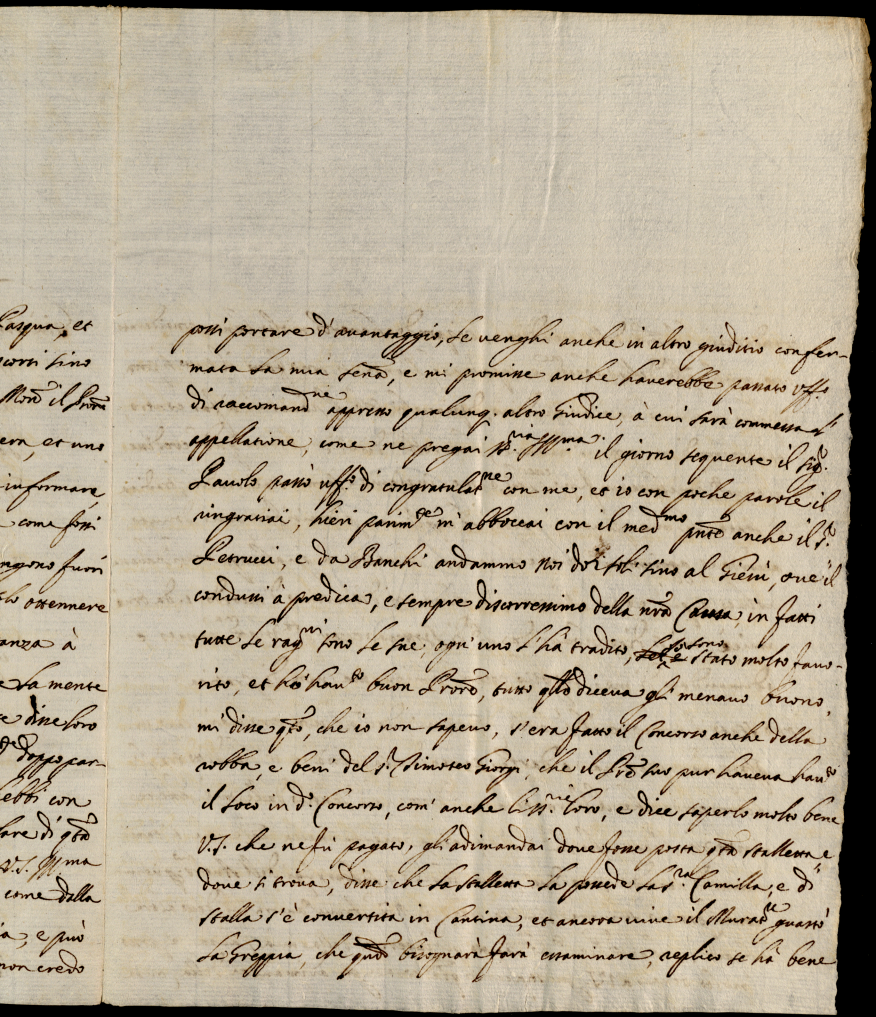 Pasqua, et
corsi sino
Mons. il Prore
era, et uno
informare,
come fossi
ngono fuori
lo ottennere
anza à
e la mente
disse loro
doppo par-
ebbi con
lare di qta
V.S. Illma
come dalla
ia, e può
non credo
possi portare d'avantaggio, se venghi anche in altro giuditio confer-
mata la mia senza, e mi promisse anche haverebbe passato uff.o
di raccomandne appresso qualunq. altro Giudice, à cui sarà commessa l'
appellatione, come ne pregai il giorno sequente il Sigr.
Pavolo passò uff.o di congratulatne con me, et io con poche parole il
ringratiai, hieri parimte m'abboccai con il medmo pnte anche il Sr.
Petrucci, e da Banchi andammo noi doi soli sino al Giesù, ove il
condussi à predica, e sempre discorressimo della nra Causa, in fatti
tutte le ragni sono le sue, ogn'uno l'hà tradito, io sono stato molto favo-
rito, et hò havto buon Prore, tutto qllo diceva gli menavo buono,
mi disse qto, che io non sapevo, s'era fatto il Concorso anche della
robba, e beni del Sr. Timoteo Giorgi, che il Pre suo pur haveva havto
il loco in do. Concorso, com'anche loro, e dice saperlo molto bene
V.S. che ne fù pagato, gli adimandai dove fosse posta qta stalletta e
dove si trova, disse che la stalletta la possede la Sra. Camilla, e di
stalla s'è convertita in Cantina, et ancora vive il Murate guastò
la Greppia, che qdo bisognarà farà essaminare, replico se hà bene